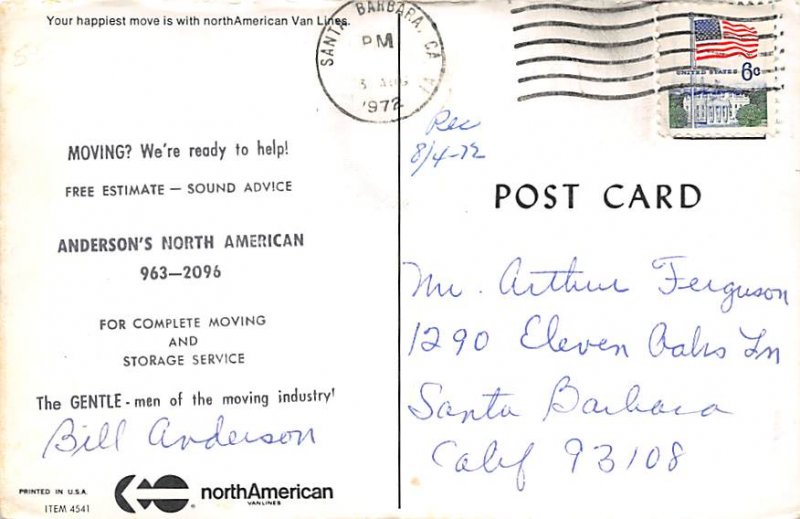 Your happiest move is with northAmerican Van Lines.
MOVING? We're ready to help!
FREE ESTIMATE — SOUND ADVICE
ANDERSON'S NORTH AMERICAN
963—2096
FOR COMPLETE MOVING
AND
STORAGE SERVICE
The GENTLE - men of the moving industry!
Bill Anderson
PRINTED IN U.S.A.
ITEM 4541
northAmerican
VAN LINES
SANTA BARBARA, CA
PM
3 AUG
1972
UNITED STATES 6c
Rec
8/4-72
POST CARD
Mr. Arthur Ferguson
1290 Eleven Oaks Ln
Santa Barbara
Calif 93108